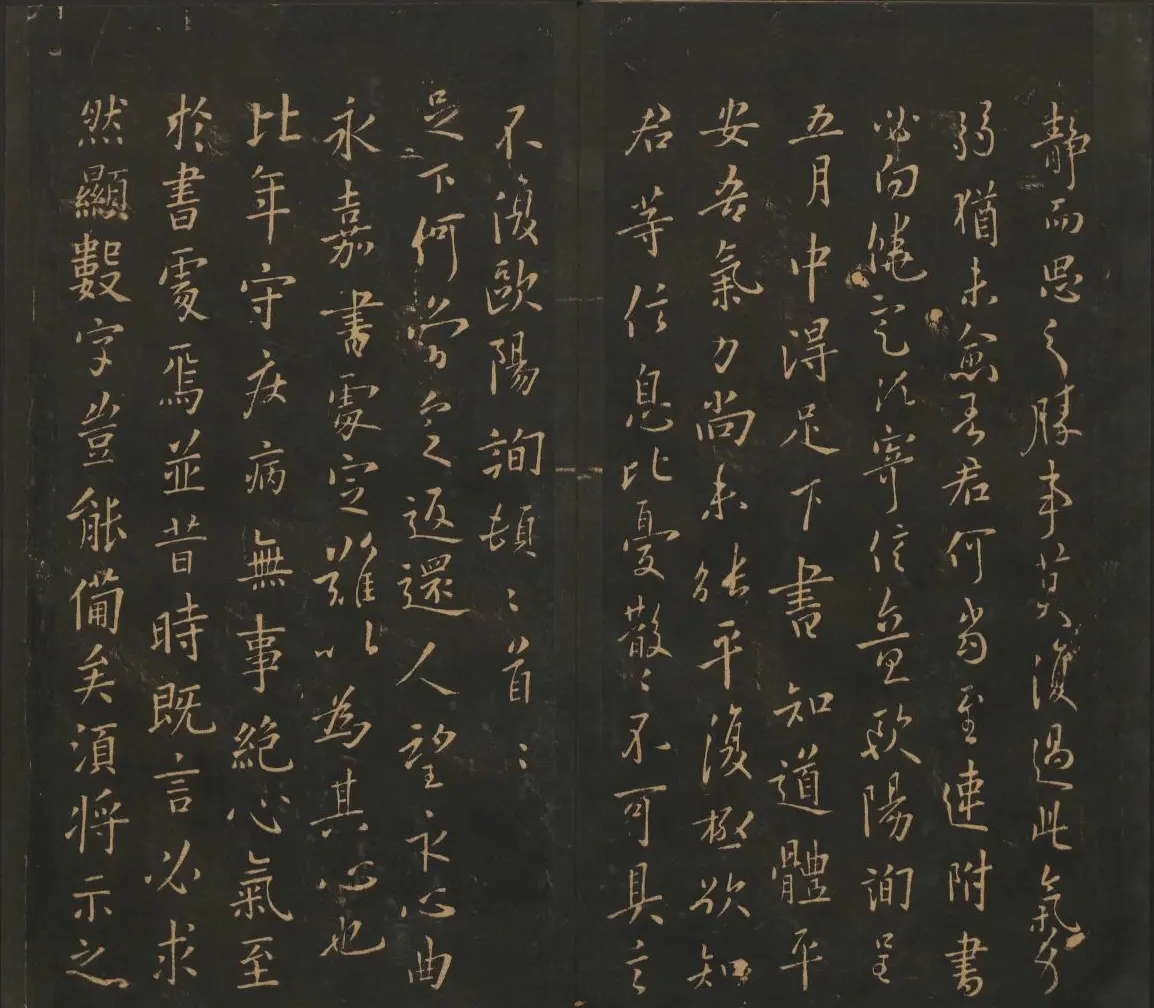 静而思之勝事莫復過此氣力
弱猶未愈吾君何當至速附書
必向饒定決寄信歐陽詢呈
五月中得足下書知道體平
安吾氣力尚未能平復極欲知
君等信息比憂散々不可具言
不復歐陽詢頓々首々
足下何當之返還人望永心曲
永嘉書處定難以為其心也
比年守疾病無事絕心氣至
於書處焉並昔時既言必求
然顯數字豈能備矣須將示之